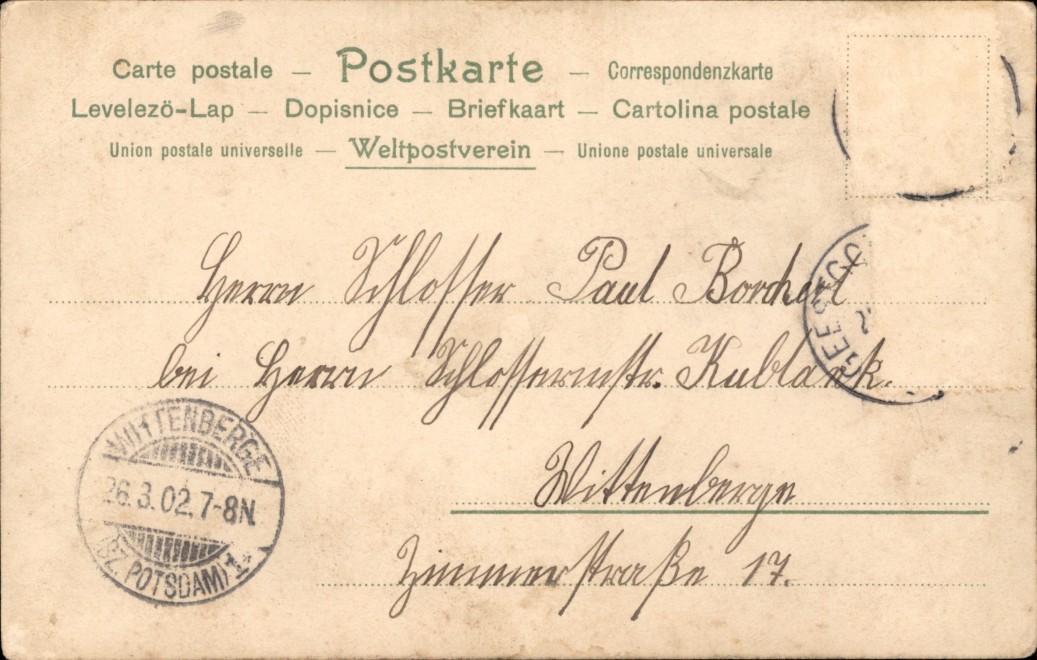 Carte postale — Postkarte — Correspondenzkarte
Levelezö-Lap — Dopisnice — Briefkaart — Cartolina postale
Union postale universelle — Weltpostverein — Unione postale universale
Herrn Schlosser Paul Borchert
bei Herrn Schlossermstr. Kublank.
Wittenberge
Zimmerstraße 17.
WITTENBERGE
26.3.02. 7-8N.
(BZ. POTSDAM) 1
SEE